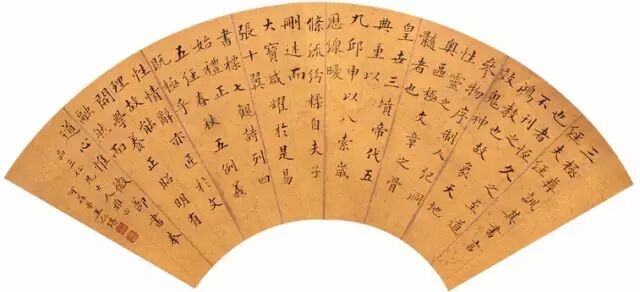 三極彝訓其書言
經也者恆久之至道
不刊之
鴻教也故象天地
效鬼神
參物序制人紀洞
性靈之
奧區極文章之骨
髓者也
皇世三墳帝代五
典重以
九邱申以八索歲
歷綿曖
條流紛糅自夫子
刪述而
大寶咸耀於是易
張十翼
書標七觀詩列四
始禮正
五經春秋五例義
既極乎
性情辭亦匠於文
理故能
開學養正昭明有
融然而
道心惟微節書奉
仁兄大人雅正